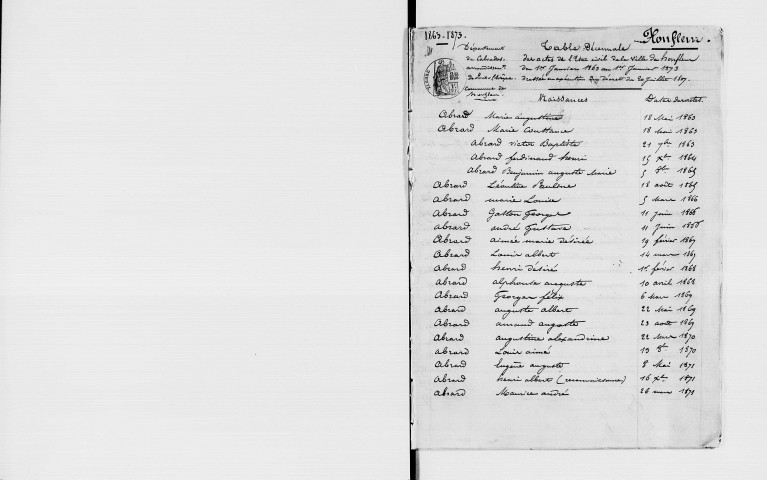 1863-1873.
Honfleur.
Département du Calvados
arrondissement de Pont-l'Evêque
Commune de Honfleur
Table Décennale
des actes de l'Etat civil de la ville de honfleur
du 1er Janvier 1863 au 1er Janvier 1873
dressée en exécution du décret du 20 Juillet 1807.
Naissances Dates des actes.
Abrard Marie augustine 18 Mai 1863
Abrard Marie Constance 18 Mai 1863
Abrard victor Baptiste 21 7bre 1863
Abrard ferdinand henri 15 Xbre 1864
Abrard Benjamin auguste Marie 5 8bre 1865
Abrard Léontine 18 août 1865
Abrard marie Louise 5 Mars 1866
Abrard Gaston George 11 juin 1866
Abrard andré Gustave 11 Juin 1866
Abrard aimée marie désirée 19 février 1867
Abrard Louis albert 14 mars 1867
Abrard henri désiré 1er février 1868
Abrard alphonse auguste 10 avril 1868
Abrard Georges félix 6 Mars 1869
Abrard auguste albert 22 Mai 1869
Abrard armand auguste 23 août 1869
Abrard augustine alexandrine 22 Mars 1870
Abrard Louis aimé 13 8bre 1870
Abrard Eugène auguste 8 Mai 1871
Abrard henri albert (reconnaissance) 16 Xbre 1871
Abrard Maurice andré 26 mars 1871